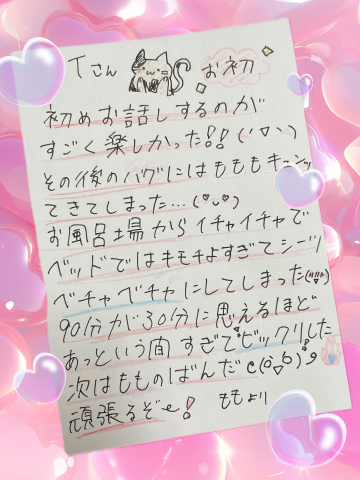 Tさん お初
初めお話しするのが
すごく楽しかった!! (´▽`)
その後のハグにはももも キュンッ
てきてしまった… (♡ᴗ♡)
お風呂場からイチャイチャで
ベッドではキモチよすぎてシーツ
ベチャベチャにしてしまった(///▽///)
90分が30分に思えるほど
あっという間すぎでビックリした
次はもものばんだ c(ò▽ó)૭
頑張るぞ〜! ももより